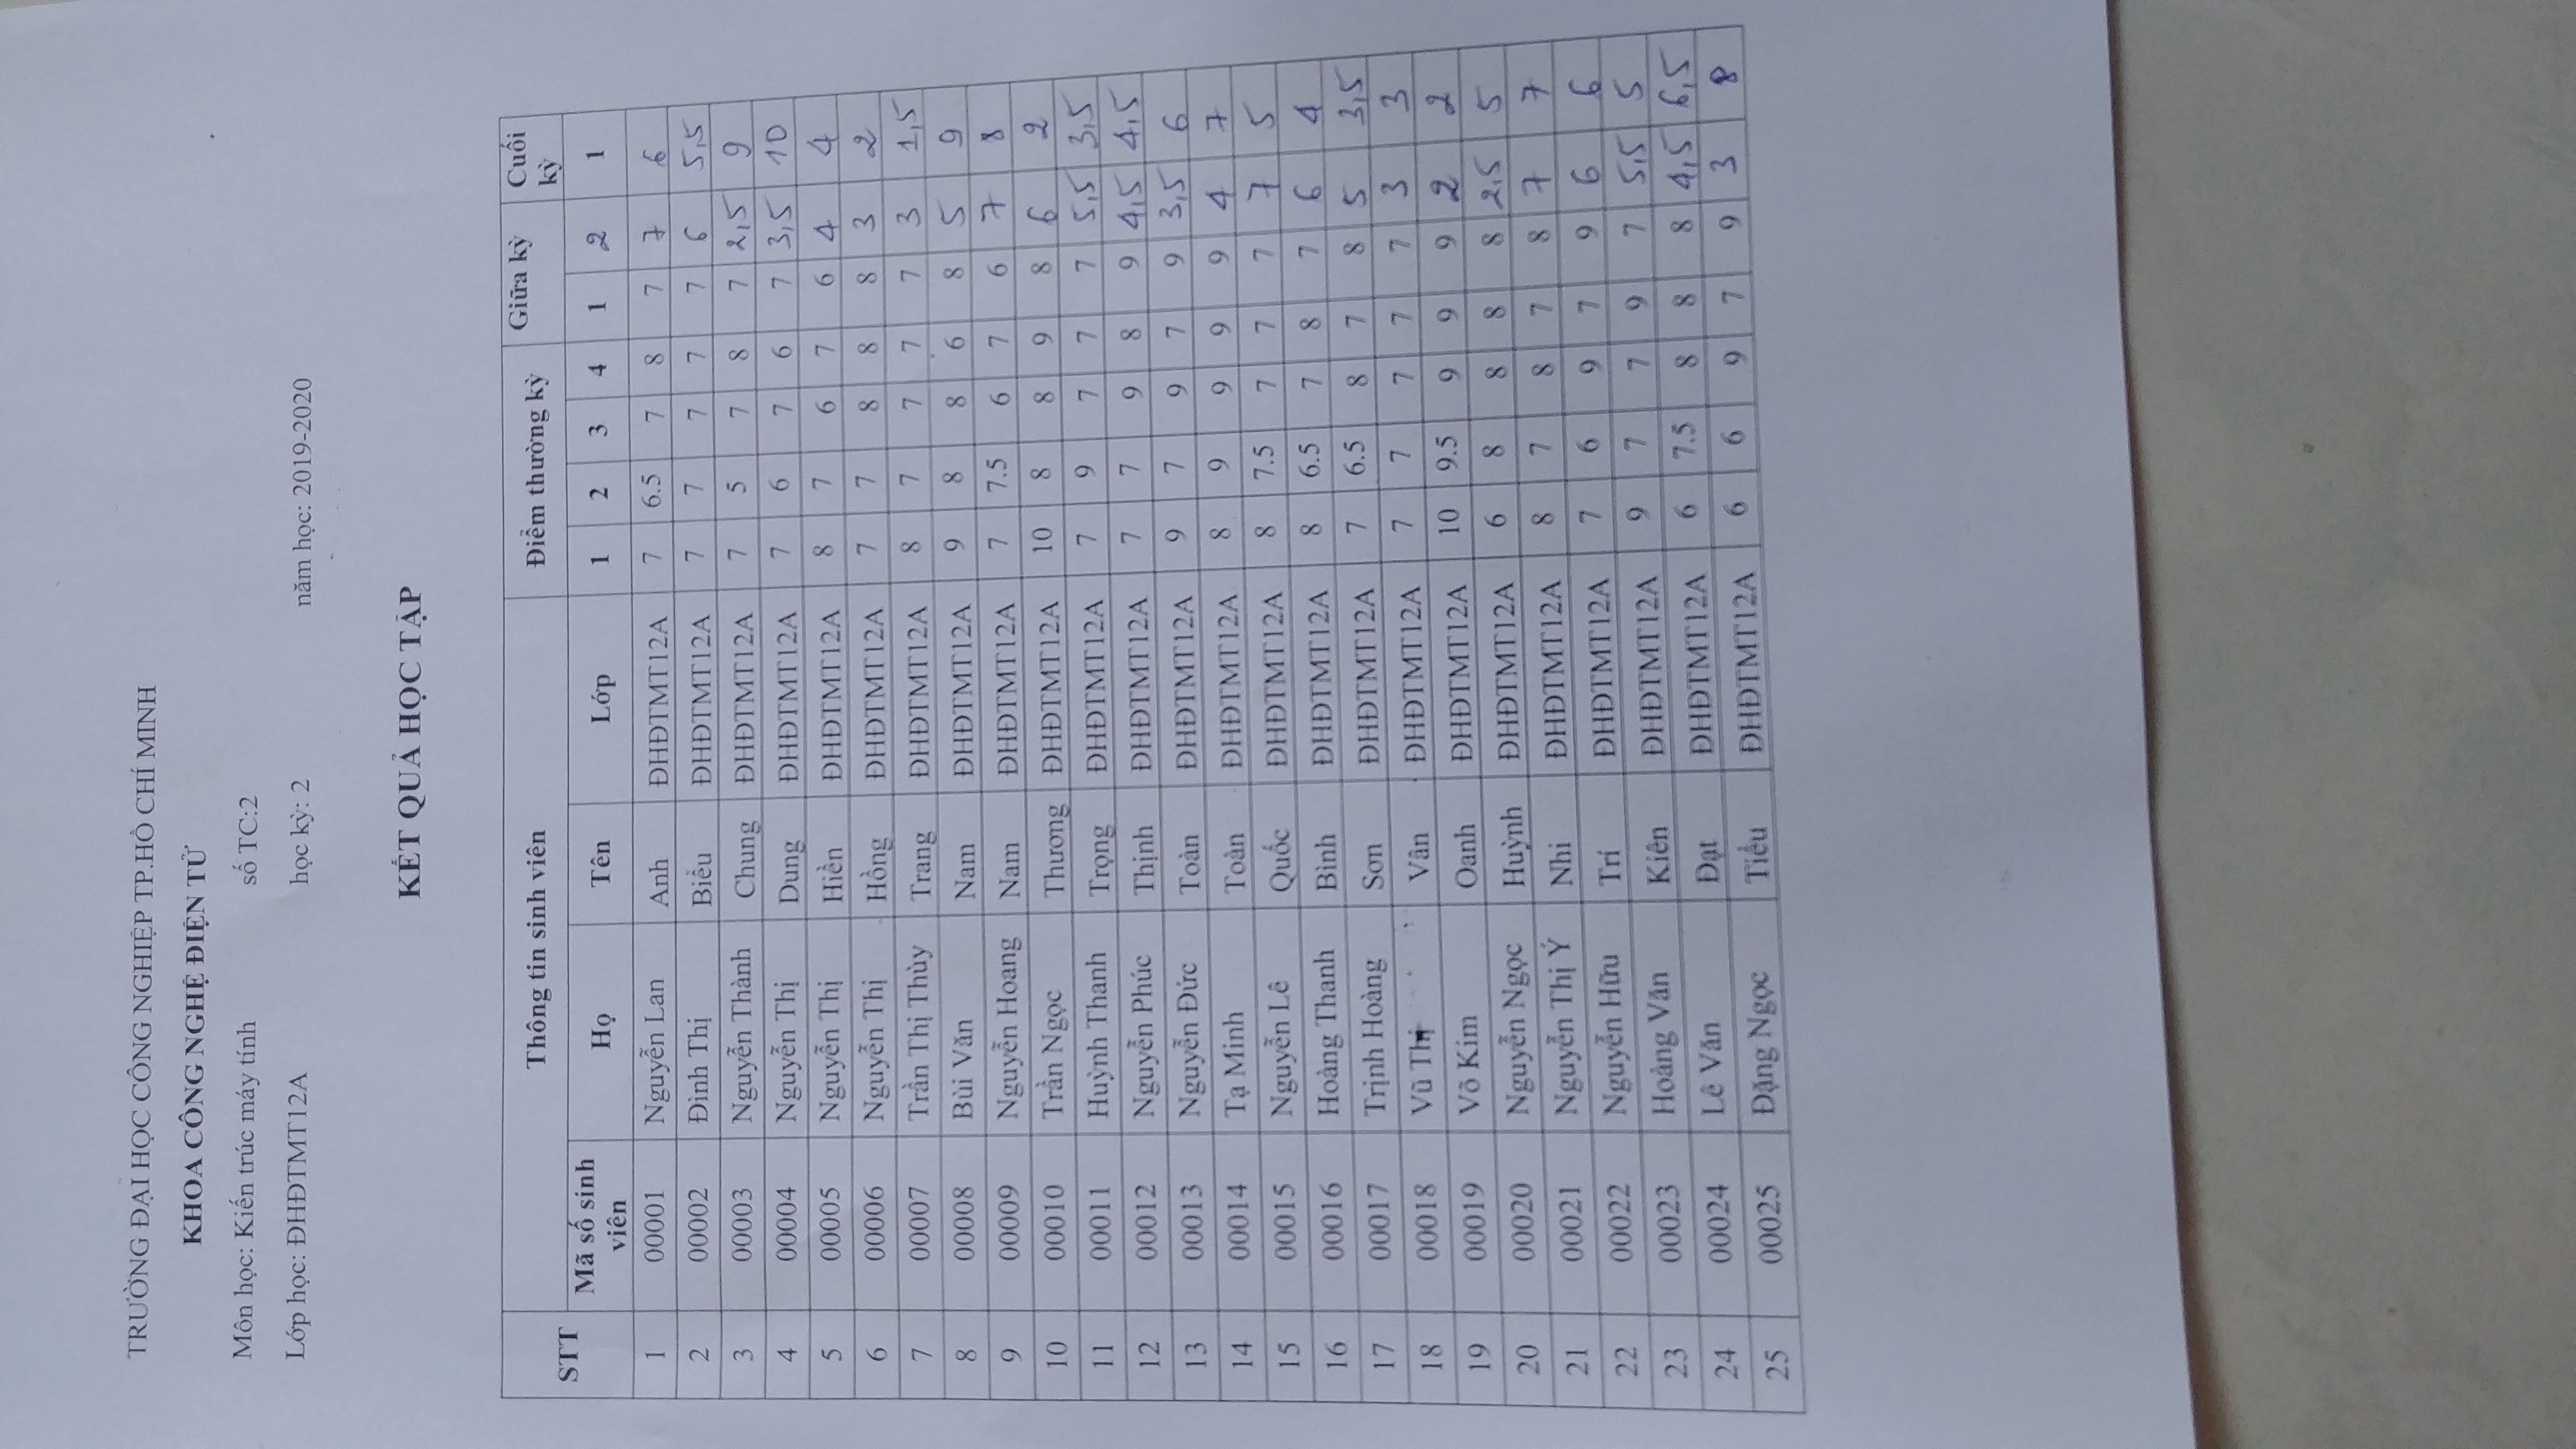 TRƯỜNG ĐẠI HỌC CÔNG NGHIỆP TP.HỒ CHÍ MINH
KHOA CÔNG NGHỆ ĐIỆN TỬ
Môn học: Kiến trúc máy tính số TC:2
Lớp học: ĐHĐTMT12A học kỳ: 2 năm học: 2019-2020
KẾT QUẢ HỌC TẬP
STT Thông tin sinh viên Điểm thường kỳ Giữa kỳ Cuối kỳ
Mã số sinh viên Họ Tên Lớp 1 2 3 4 1 2 1
1 00001 Nguyễn Lan Anh ĐHĐTMT12A 7 6.5 7 8 7 7 6
2 00002 Đình Thị Biểu ĐHĐTMT12A 7 7 7 7 7 6 5,5
3 00003 Nguyễn Thành Chung ĐHĐTMT12A 7 5 7 8 7 2,5 9
4 00004 Nguyễn Thị Dung ĐHĐTMT12A 7 6 7 6 7 3,5 10
5 00005 Nguyễn Thị Hiền ĐHĐTMT12A 8 7 6 7 6 4 4
6 00006 Nguyễn Thị Hồng ĐHĐTMT12A 7 7 8 8 8 3 2
7 00007 Trần Thị Thùy Trang ĐHĐTMT12A 8 7 7 7 7 3 1,5
8 00008 Bùi Văn Nam ĐHĐTMT12A 9 8 8 6 8 5 9
9 00009 Nguyễn Hoang Nam ĐHĐTMT12A 7 7.5 6 7 6 7 8
10 00010 Trần Ngọc Thương ĐHĐTMT12A 10 8 8 9 8 6 2
11 00011 Huỳnh Thanh Trọng ĐHĐTMT12A 7 9 7 7 7 5,5 3,5
12 00012 Nguyễn Phúc Thịnh ĐHĐTMT12A 7 7 9 8 9 4,5 4,5
13 00013 Nguyễn Đức Toàn ĐHĐTMT12A 9 7 9 7 9 3,5 6
14 00014 Tạ Minh Toàn ĐHĐTMT12A 8 9 9 9 9 4 7
15 00015 Nguyễn Lê Quốc ĐHĐTMT12A 8 7.5 7 7 7 7 5
16 00016 Hoàng Thanh Bình ĐHĐTMT12A 8 6.5 7 8 7 6 4
17 00017 Trịnh Hoàng Sơn ĐHĐTMT12A 7 6.5 8 7 8 5 3,5
18 00018 Vũ Thị Vân ĐHĐTMT12A 7 7 7 7 7 3 3
19 00019 Võ Kim Oanh ĐHĐTMT12A 10 9.5 9 9 9 2 2
20 00020 Nguyễn Ngọc Huỳnh ĐHĐTMT12A 6 8 8 8 8 2,5 5
21 00021 Nguyễn Thị Ý Nhi ĐHĐTMT12A 8 7 8 7 8 7 7
22 00022 Nguyễn Hữu Trí ĐHĐTMT12A 7 6 9 7 9 6 6
23 00023 Hoảng Văn Kiên ĐHĐTMT12A 9 7 7 9 7 5,5 5
24 00024 Lê Văn Đạt ĐHĐTMT12A 6 7.5 8 8 8 4,5 6,5
25 00025 Đặng Ngọc Tiểu ĐHĐTMT12A 6 6 9 7 9 3 8